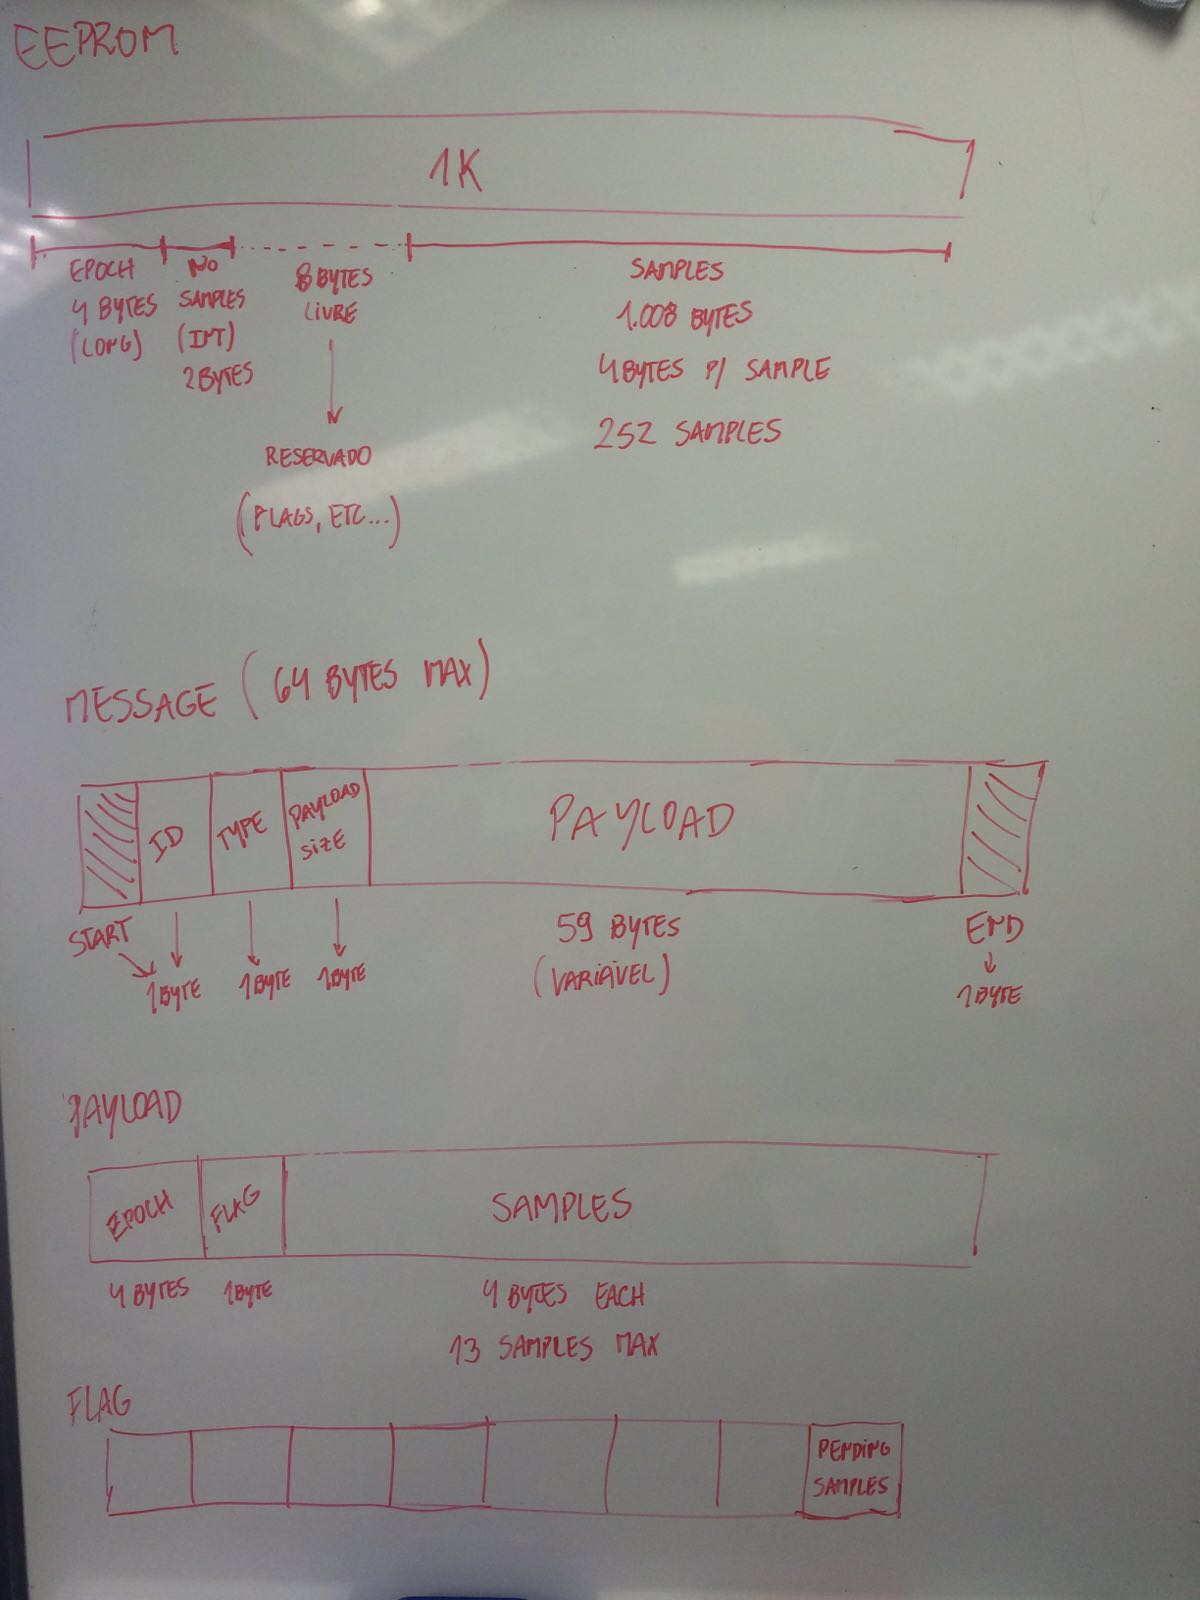 EEPROM
1K
EPOCH
4 BYTES
(LONG)
NO
SAMPLES
(INT)
2 BYTES
8 BYTES
LIVRE
RESERVADO
(FLAGS, ETC...)
SAMPLES
1.008 BYTES
4 BYTES P/ SAMPLE
252 SAMPLES
MESSAGE (64 BYTES MAX)
ID
TYPE
PAYLOAD
SIZE
PAYLOAD
START
1 BYTE
1 BYTE
1 BYTE
59 BYTES
(VARIÁVEL)
END
1 BYTE
PAYLOAD
EPOCH
FLAG
SAMPLES
4 BYTES
1 BYTE
4 BYTES EACH
13 SAMPLES MAX
FLAG
PENDING
SAMPLES